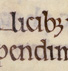 licibꝫ
pendim